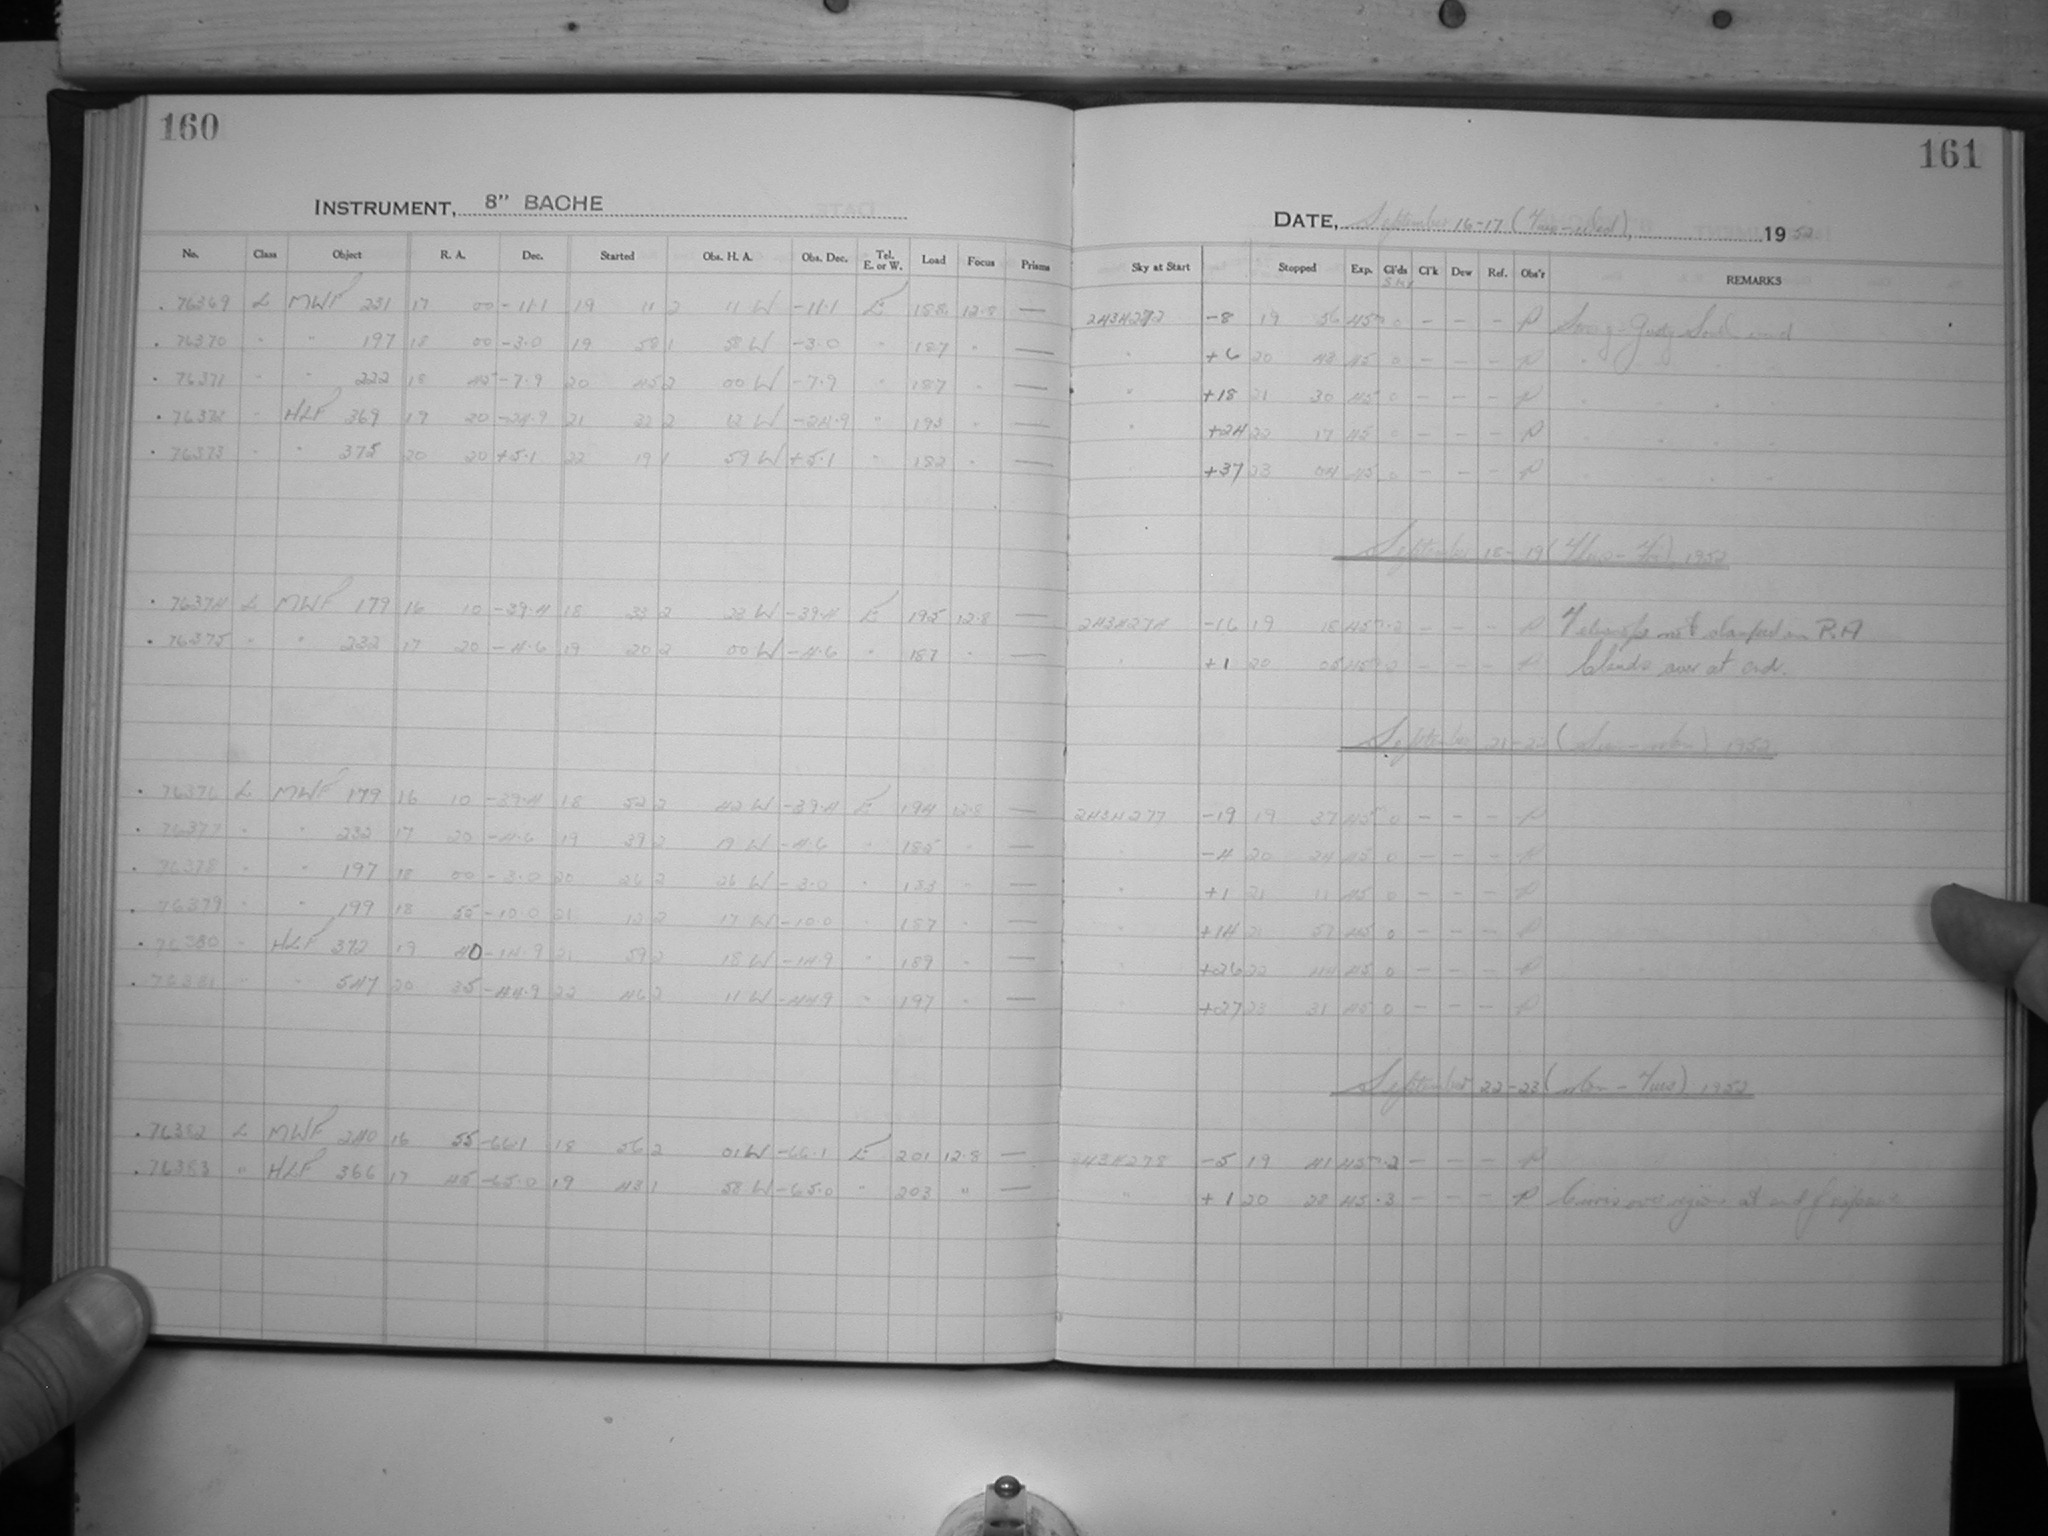 160
INSTRUMENT, 8" BACHE
No. Class Object R. A. Dec. Started Obs. H. A. Obs. Dec. Tel. E. or W. Load Focus Prisms
76369 L MWF 231 17 00 -11.1 19 11 2 11 W -11.1 E 188 12.8 —
76370 " " 197 18 00 -3.0 19 58 1 58 W -3.0 " 187 " —
76371 " " 222 18 45 -7.9 20 45 2 00 W -7.9 " 187 " —
76372 " HLF 369 19 20 -24.9 21 32 2 12 W -24.9 " 193 " —
76373 " " 375 20 20 +5.1 22 19 1 59 W +5.1 " 182 " —
76374 L MWF 179 16 10 -39.4 18 33 2 23 W -39.4 E 195 12.8 —
76375 " " 232 17 20 -4.6 19 20 2 00 W -4.6 " 187 " —
76376 L MWF 179 16 10 -39.4 18 52 2 42 W -39.4 E 194 12.8 —
76377 " " 232 17 20 -4.6 19 39 2 19 W -4.6 " 185 " —
76378 " " 197 18 00 -3.0 20 26 2 26 W -3.0 " 183 " —
76379 " " 199 18 55 -10.0 21 12 2 17 W -10.0 " 187 " —
76380 " HLF 372 19 40 -14.9 21 59 2 18 W -14.9 " 189 " —
76381 " " 547 20 35 -44.9 22 46 2 11 W -44.9 " 197 " —
76382 L MWF 240 16 55 -66.1 18 56 2 01 W -66.1 E 201 12.8 —
76383 " HLF 366 17 45 -65.0 19 43 1 58 W -65.0 " 203 " —
161
DATE, September 16-17 (Tues-Wed), 1952
Sky at Start Stopped Exp. Cl'ds Cl'k Dew Ref. Obs'r REMARKS
Sky
2434272 -8 19 56 45 0 — — — P Strong-Gusty South wind
" +6 20 43 45 0 — — — P " " " "
" +18 21 30 45 0 — — — P " " " "
" +24 22 17 45 0 — — — P " " " "
" +37 23 04 45 0 — — — P " " " "
September 18-19 (Thurs-Fri) 1952
2434274 -16 19 18 45 .2 — — — P Telescope not clamped in R.A
" +1 20 05 45 .2 — — — P Clouds over at end.
September 21-22 (Sun-Mon) 1952
2434277 -19 19 37 45 0 — — — P
" -4 20 24 45 0 — — — P
" +1 21 11 45 0 — — — P
" +14 21 57 45 0 — — — P
" +26 22 44 45 0 — — — P
" +27 23 31 45 0 — — — P
September 22-23 (Mon-Tues) 1952
2434278 -5 19 41 45 .2 — — — P
" +1 20 28 45 .3 — — — P Cirrus over region at end of exposure